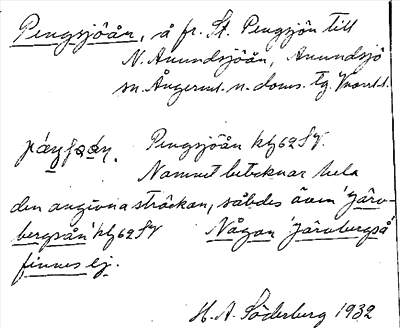 Pengsjöån, å fr. St. Pengsjön till
N. Anundsjöån, Anundsjö
sn. Ångerml. n. doms. tg. Vnorrl. l.
Pengsjöån kbl 62 SV.
Namnet betecknar hela
den angivna sträckan, således även 'Järv-
bergsån' kbl 62 SV Någon 'Järvbergså'
finnes ej.
H. A. Söderberg 1932